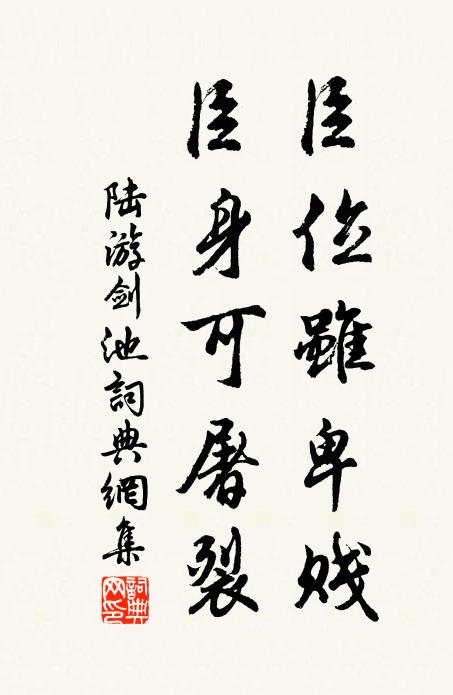 臣位雖卑賤
臣身可屠裂
陸游劍池詞典網集
詞典網印